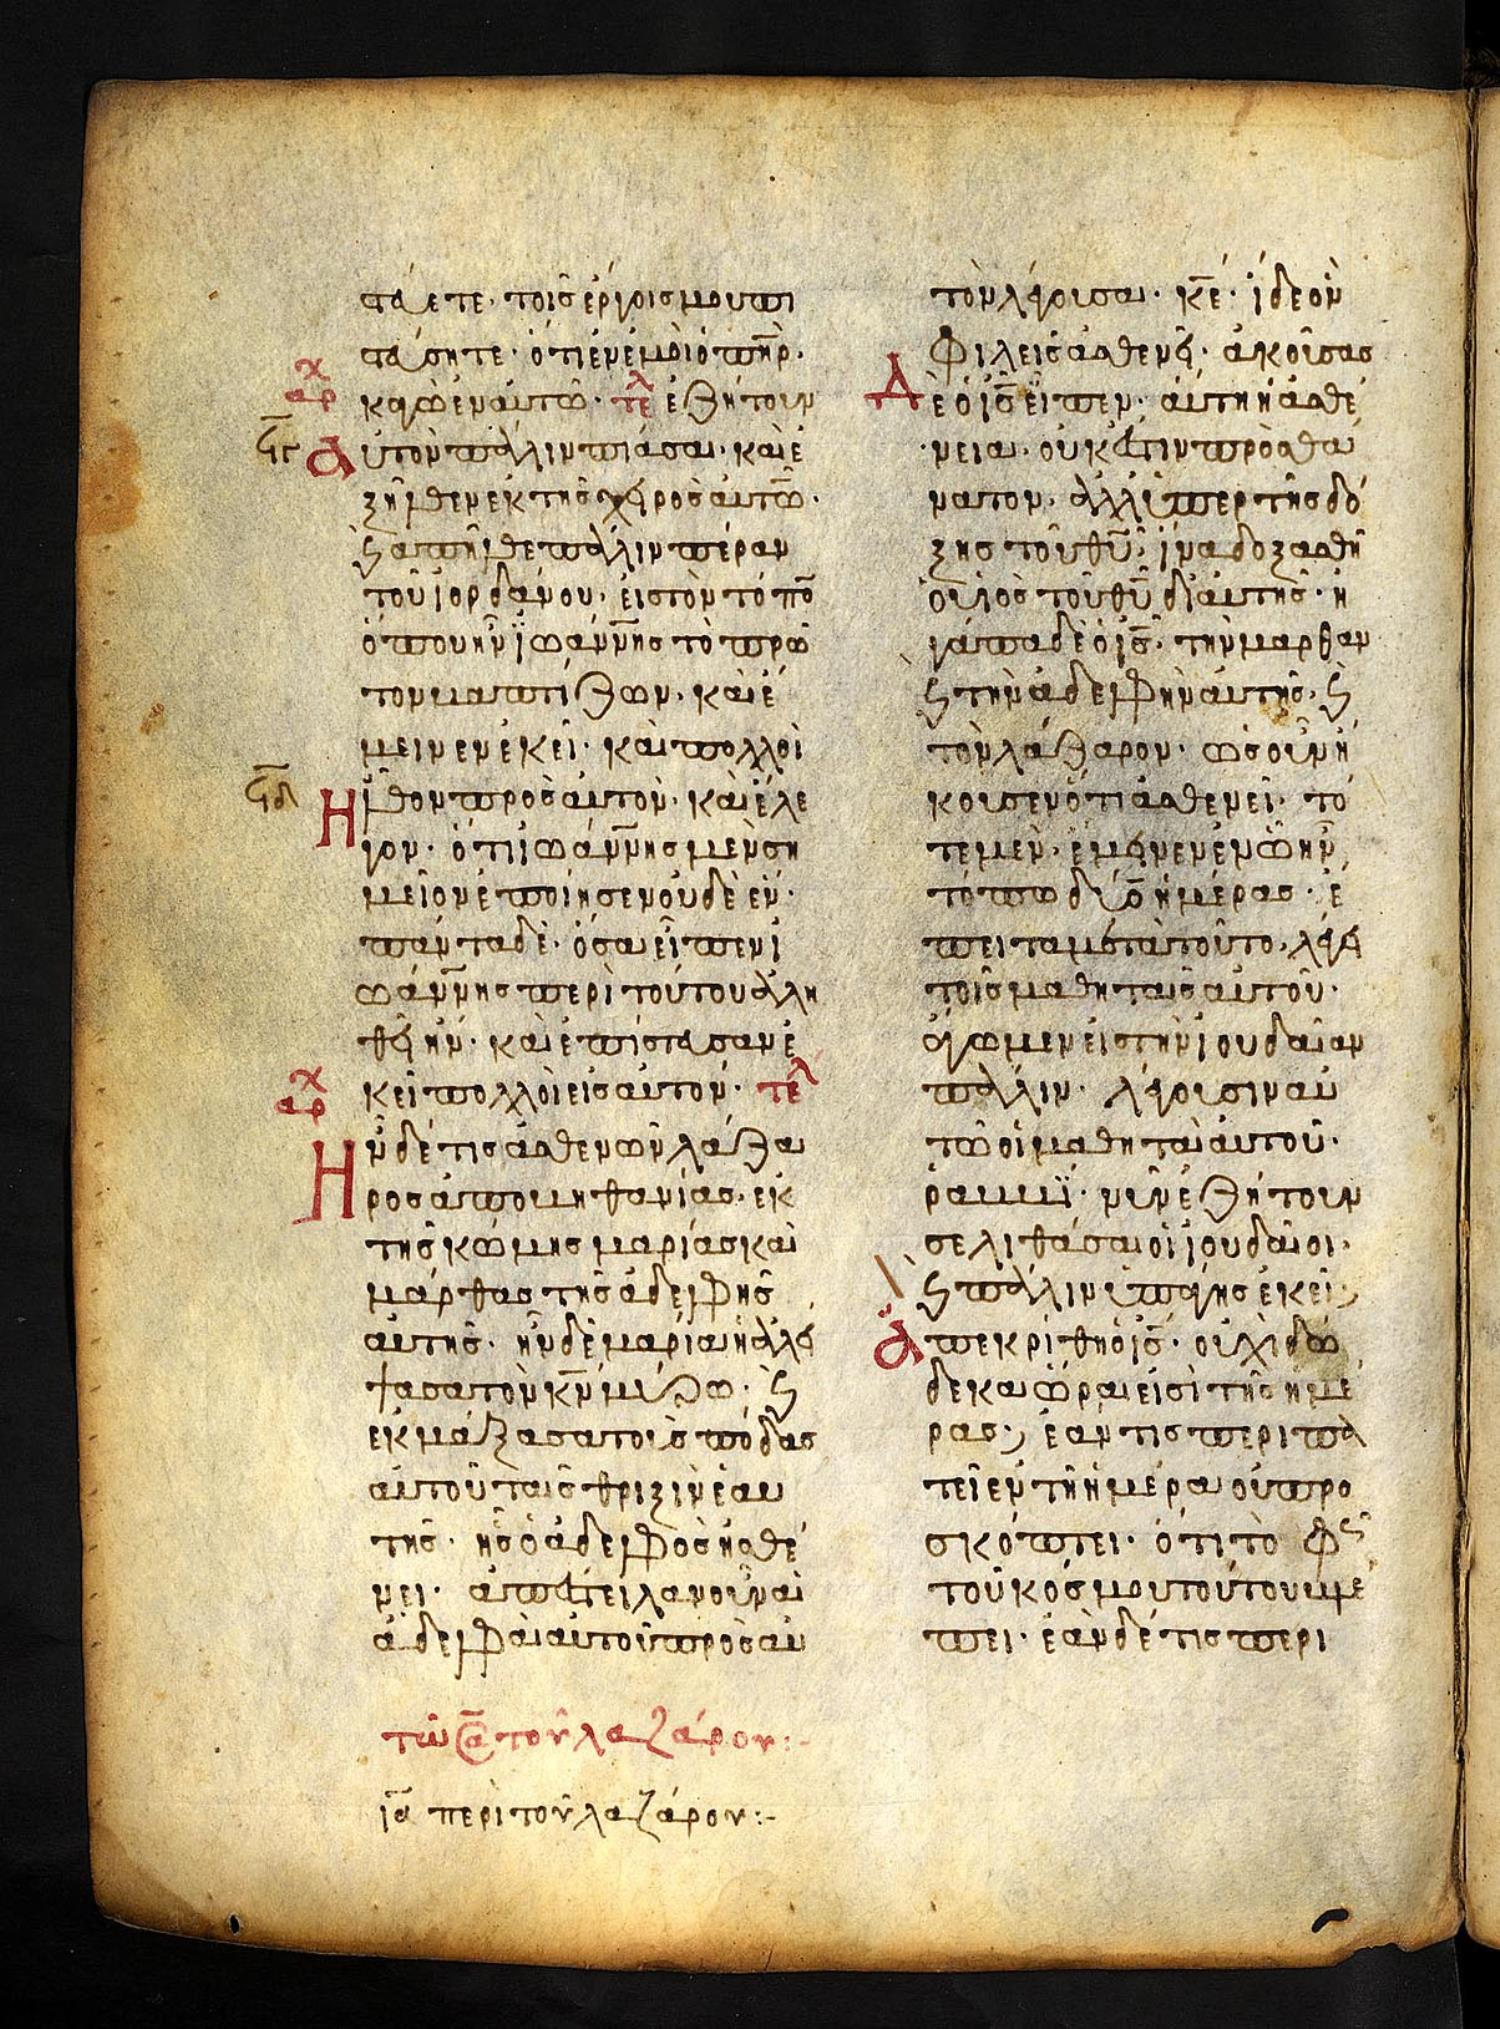 ταύετε· τοῖς ἔργοις μου πι
στεύσητε· ὅτι ἐν ἐμοὶ ὁ πη̅ρ·
αρχ
κἀγὼ ἐν αὐτῶ· τελ ἐζήτουν
ϟγ
Αὐτὸν πάλιν πιάσαι· καὶ ἐ
ξῆλθεν ἐκ τῆς χειρὸς αὐτῶν·
ϗ ἀπῆλθε πάλιν πέραν
τοῦ ἰορδάνου· εἰς τὸν τόπο̅
ὅπου ἦν ἰωάννης τὸ πρῶ
τον βαπτίζων· καὶ ἔ
μεινεν ἐκεῖ· καὶ πολλοὶ
ϟδ
Ἦλθον πρὸς αὐτόν· καὶ ἔλε
γον· ὅτι ἰωάννης μὲν ση
μεῖον ἐποίησεν οὐδὲ ἕν·
πάντα δὲ ὅσα εἶπεν ἰ
ωάννης περὶ τούτου ἀλη
θῆ ἦν· καὶ ἐπίστευσαν ἐ
αρχ
κεῖ πολλοὶ εἰς αὐτόν· τελ
Ἦν δέ τις ἀσθενῶν λάζα
ρος ἀπὸ βηθανίας· ἐκ
τῆς κώμης μαρίας καὶ
μάρθας τῆς ἀδελφῆς
αὐτῆς· ἦν δὲ μαρία ἡ ἀλεί
ψασα τὸν κ̅ν μύρω· ϗ
ἐκμάξασα τοὺς πόδας
αὐτοῦ ταῖς θριξὶν ἑαυ
τῆς· ἧς ὁ ἀδελφὸς ἠσθέ
νει· ἀπέστειλαν οὖν αἱ
ἀδελφαὶ αὐτοῦ πρὸς αὐ
τῶ σα τοῦ λαζάρου:-
ια περὶ τοῦ λαζάρου:-
τὸν λέγουσαι· κ̅ε· ἴδε ὃν
φιλεῖς ἀσθενεῖ· ἀκούσας
Δὲ ὁ ι̅ς εἶπεν· αὕτη ἡ ἀσθέ
νεια· οὐκ ἔστιν πρὸς θά
νατον· ἀλλ' ὑπὲρ τῆς δό
ξης τοῦ θ̅υ· ἵνα δοξασθῆ
ὁ υἱὸς τοῦ θ̅υ δι' αὐτῆς· ἠ
γάπα δὲ ὁ ι̅ς· τὴν μάρθαν
ϗ τὴν ἀδελφὴν αὐτῆς· ϗ
τὸν λάζαρον· ὡς οὖν ἤ
κουσεν ὅτι ἀσθενεῖ· τό
τε μὲν· ἔμεινεν ἐν ὧ ἦν
τόπω δύο ἡμέρας· ἔ
πειτα μετὰ τοῦτο· λέγει
τοῖς μαθηταῖς αὐτοῦ·
ἄγωμεν εἰς τὴν ἰουδαίαν
πάλιν· λέγουσιν αὐ
τῶ οἱ μαθηταὶ αὐτοῦ·
ῥαββί· νῦν ἐζήτουν
σε λιθάσαι οἱ ἰουδαῖοι·
ϗ πάλιν ὑπάγεις ἐκεῖ;
Ἀπεκρίθη ὁ ι̅ς· οὐχὶ δώ
δεκα ὧραι εἰσὶ τῆς ἡμέ
ρας; ἐάν τις περιπα
τεῖ ἐν τῆ ἡμέρα οὐ προ
σκόπτει· ὅτι τὸ φῶς
τοῦ κόσμου τούτου βλέ
πει· ἐὰν δέ τις περι